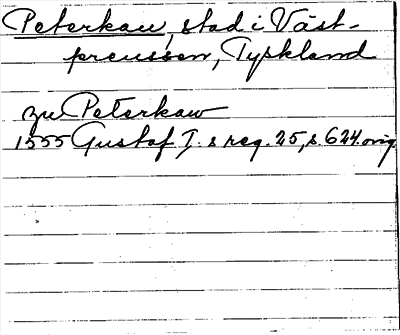 Peterkau, stad i Väst-
preussen, Tyskland
zu Peterkaw
1555 Gustaf I. s reg. 25, s. 624. orig.